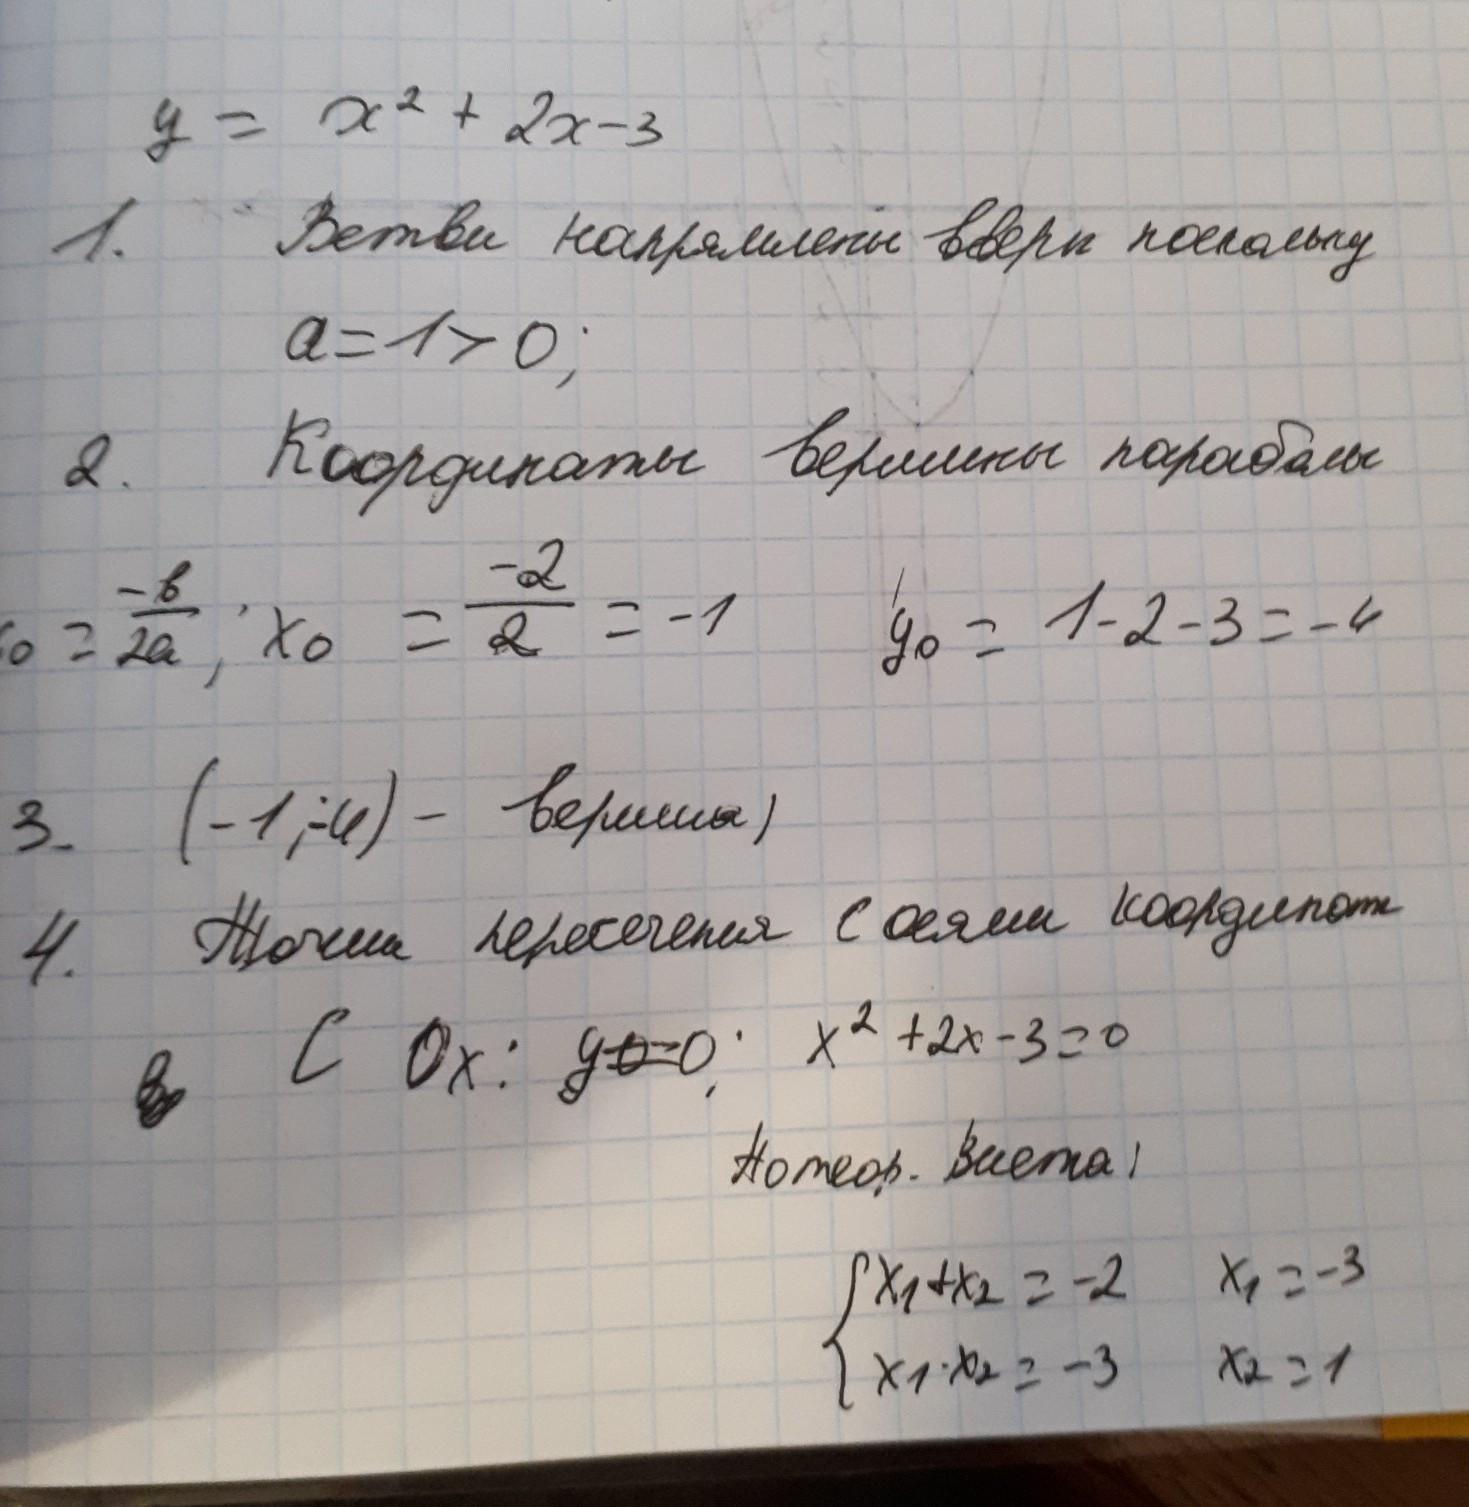 y = x² + 2x - 3
1. Ветви напрямлены вверх поскольку
a = 1 > 0;
2. Координаты вершины параболы
x₀ = -b/2a; x₀ = -2/2 = -1 y₀ = 1 - 2 - 3 = -4
3. (-1; -4) - вершина;
4. Точки пересечения с осями координат
С Ox: y = 0; x² + 2x - 3 = 0
По теор. Виета:
{ x₁ + x₂ = -2 x₁ = -3
x₁ · x₂ = -3 x₂ = 1